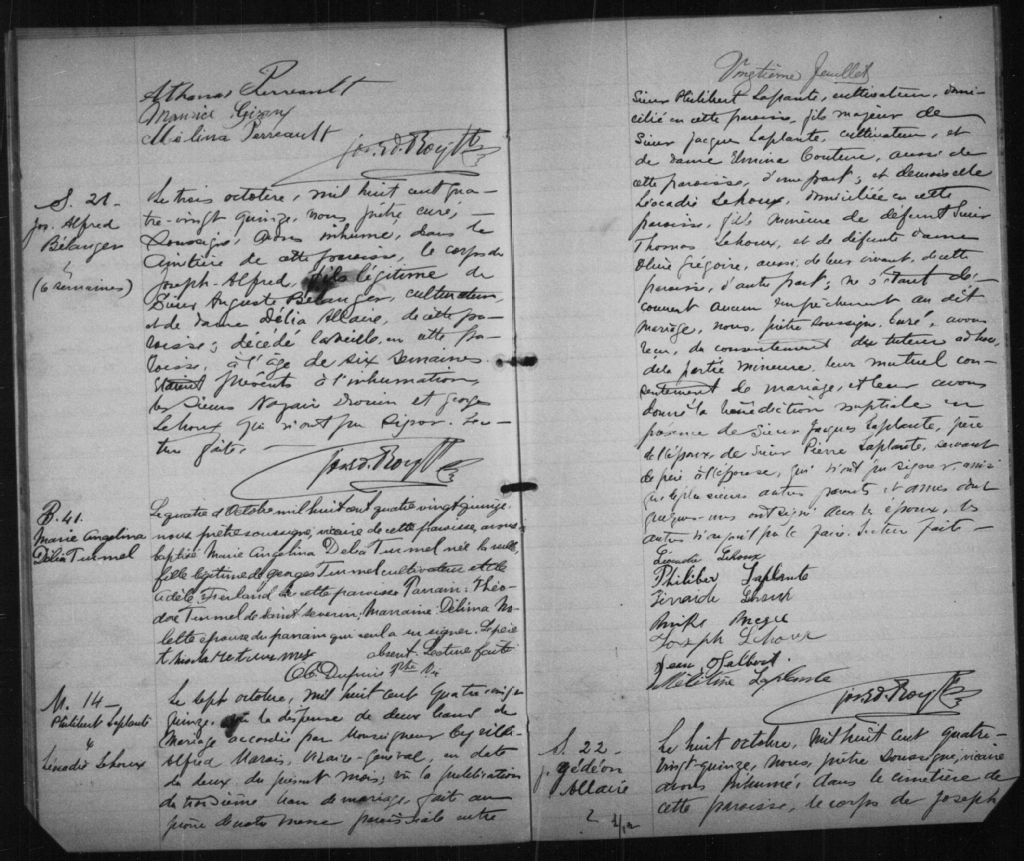 Athanas Perreault
Maurice
Mélina Perreault
Jos. Ed. Roy Ptre
S. 21 -
Jos. Alfred
Bélanger
(6 semaines)
Le trois octobre, mil huit cent qua-
tre-vingt quinze, nous, prêtre curé,
soussigné, avons inhumé, dans le
cimetière de cette paroisse, le corps de
Joseph-Alfred, fils légitime de
Sieur Auguste Bélanger, cultivateur,
et de dame Délia Allaire, de cette pa-
roisse; décédé la veille, en cette pa-
roisse, à l'âge de six semaines.
Etaient présents à l'inhumation,
les Sieurs Nazair Drouin et Georges
Lehoux qui n'ont pu signer. Lec-
ture faite.
Jos. Ed. Roy Ptre
B. 41.
Marie Angelina
Délia Turmel
Le quatre d'Octobre mil huit cent quatre vingt quinze
nous prêtre soussigné, vicaire de cette paroisse avons
baptisé Marie Angelina Delia Turmel née la veille,
fille légitime de Georges Turmel cultivateur et de
Adèle Ferland de cette paroisse Parrain: Théo-
dore Turmel de Saint Severin, Marraine: Délima No-
lette épouse du parrain qui seul a su signer. Le père
absent. Lecture faite
O. E. Dupuis Ptre Vic
M. 14 -
Philibert Laplante
&
Léocadie Lehoux
Le sept octobre, mil huit cent quatre-vingt
quinze, vu la dispense de deux bans de
mariage accordée par Monseigneur Cyrille-
Alfred Marois, Vicaire-Général, en date
du deux du présent mois; vu la publication
du troisième ban de mariage, faite au
prône de notre messe paroissiale entre
Vingtième feuillet
Sieur Philibert Laplante, cultivateur, domi-
cilié en cette paroisse, fils majeur de
Sieur Jacques Laplante, cultivateur, et
de dame Elmina Couture, aussi de
cette paroisse, d'une part; et demoiselle
Léocadie Lehoux, domiciliée en cette
paroisse, fille mineure de défunt Sieur
Thomas Lehoux, et de défunte dame
Olive Grégoire, aussi, de leur vivant, de cette
paroisse, d'autre part; ne s'étant dé-
couvert aucun empêchement au dit
mariage, nous, prêtre soussigné, curé, avons
reçu, du consentement du tuteur ad hoc,
de la partie mineure, leur mutuel con-
sentement de mariage, et leur avons
donné la bénédiction nuptiale en
présence de Sieur Jacques Laplante, père
de l'époux, de Sieur Pierre Laplante, servant
de père à l'épouse, qui n'ont pu signer, ainsi
que plusieurs autres parents et amis dont
quelques-uns ont signé avec les époux, les
autres n'ayant pu le faire. Lecture faite -
Léocadie Lehoux
Philiber Laplante
Lehoux
Joseph Lehoux
Jean Jalbert.
Méleline Laplante
Jos. Ed. Roy Ptre
S. 22 -
J. Gédéon
Allaire
Le huit octobre, mil huit cent quatre-
vingt-quinze, nous, prêtre soussigné, vicaire
avons inhumé, dans le cimetière de
cette paroisse, le corps de Joseph